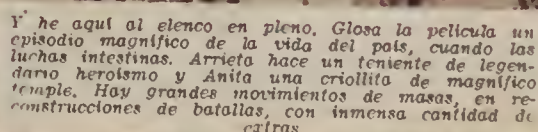 Y he aquí al elenco en pleno. Glosa la película un
episodio magnífico de la vida del país, cuando las
luchas intestinas. Arrieta hace un teniente de legen-
dario heroísmo y Anita una criollita de magnífico
temple. Hay grandes movimientos de masas, en re-
construcciones de batallas, con inmensa cantidad de
extras